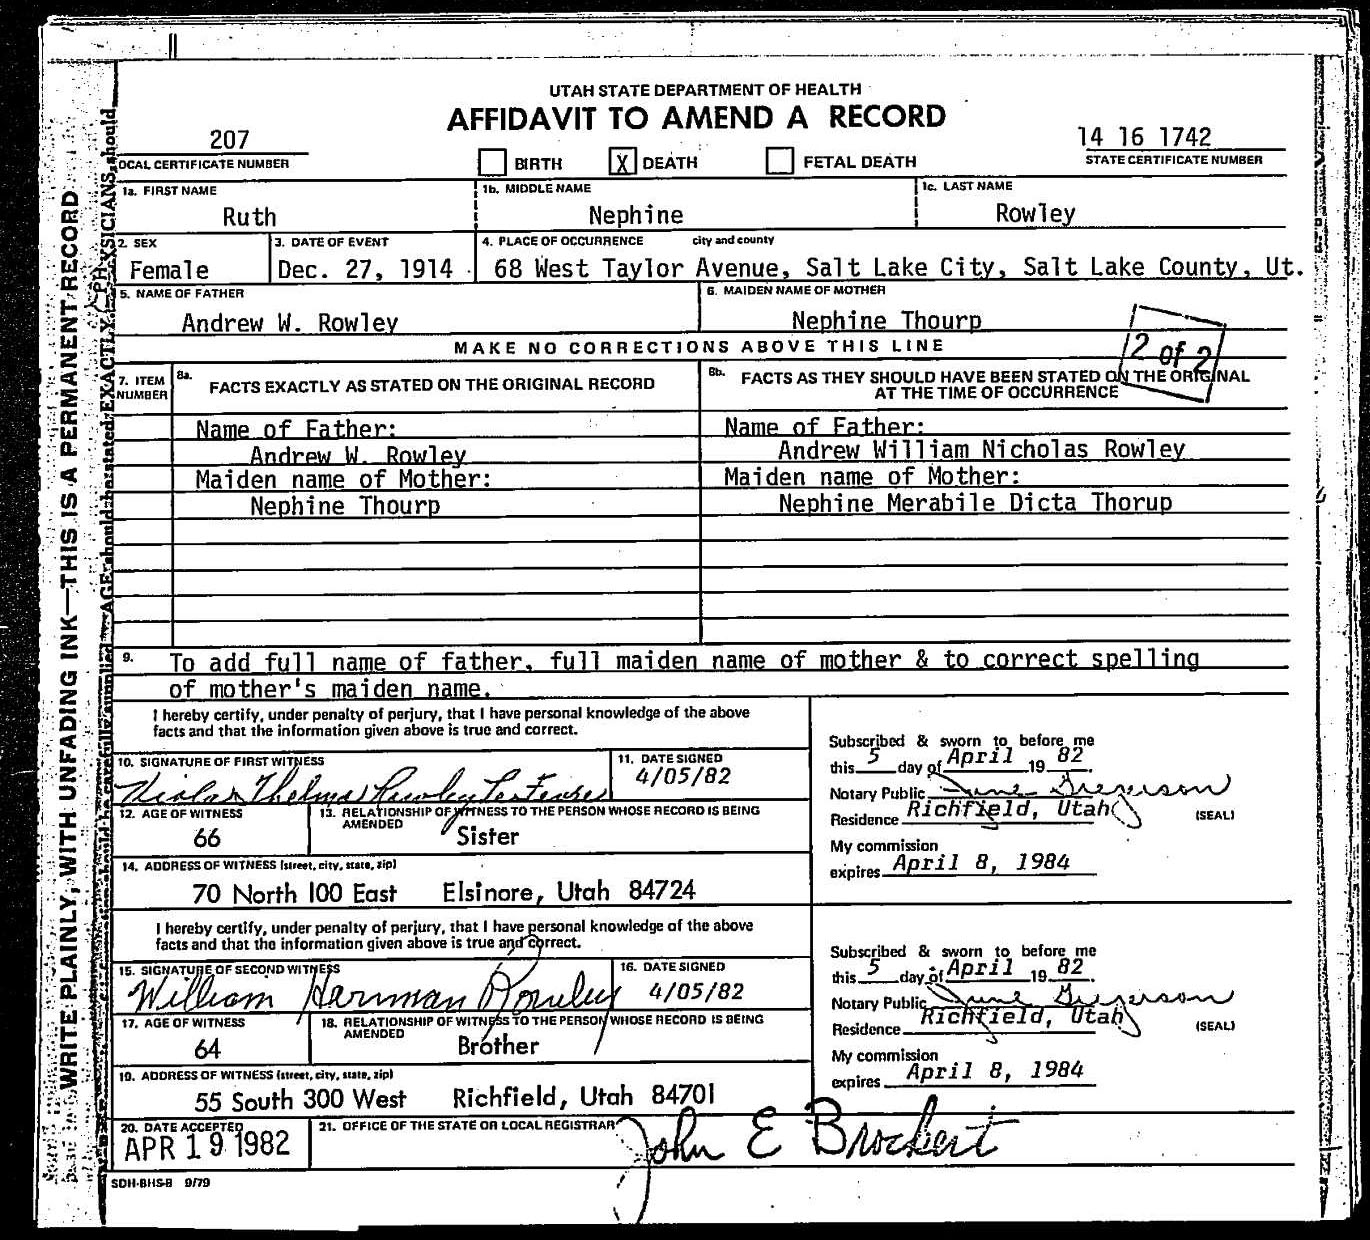 UTAH STATE DEPARTMENT OF HEALTH
AFFIDAVIT TO AMEND A RECORD
207
OCAL CERTIFICATE NUMBER
BIRTH X DEATH FETAL DEATH
14 16 1742
STATE CERTIFICATE NUMBER
1a. FIRST NAME 1b. MIDDLE NAME 1c. LAST NAME
Ruth Nephine Rowley
2. SEX 3. DATE OF EVENT 4. PLACE OF OCCURRENCE city and county
Female Dec. 27, 1914 68 West Taylor Avenue, Salt Lake City, Salt Lake County, Ut.
5. NAME OF FATHER 6. MAIDEN NAME OF MOTHER
Andrew W. Rowley Nephine Thourp
MAKE NO CORRECTIONS ABOVE THIS LINE
2 of 2
7. ITEM NUMBER 8a. FACTS EXACTLY AS STATED ON THE ORIGINAL RECORD 8b. FACTS AS THEY SHOULD HAVE BEEN STATED ON THE ORIGINAL
AT THE TIME OF OCCURRENCE
Name of Father: Name of Father:
Andrew W. Rowley Andrew William Nicholas Rowley
Maiden name of Mother: Maiden name of Mother:
Nephine Thourp Nephine Merabile Dicta Thorup
9. To add full name of father, full maiden name of mother & to correct spelling
of mother's maiden name.
I hereby certify, under penalty of perjury, that I have personal knowledge of the above
facts and that the information given above is true and correct.
10. SIGNATURE OF FIRST WITNESS 11. DATE SIGNED
Thelma Rowley 4/05/82
12. AGE OF WITNESS 13. RELATIONSHIP OF WITNESS TO THE PERSON WHOSE RECORD IS BEING
AMENDED
66 Sister
14. ADDRESS OF WITNESS (street, city, state, zip)
70 North 100 East Elsinore, Utah 84724
Subscribed & sworn to before me
this 5 day of April 19 82.
Notary Public June Gregerson
Residence Richfield, Utah (SEAL)
My commission
expires April 8, 1984
I hereby certify, under penalty of perjury, that I have personal knowledge of the above
facts and that the information given above is true and correct.
15. SIGNATURE OF SECOND WITNESS 16. DATE SIGNED
William Harman Rowley 4/05/82
17. AGE OF WITNESS 18. RELATIONSHIP OF WITNESS TO THE PERSON WHOSE RECORD IS BEING
AMENDED
64 Brother
19. ADDRESS OF WITNESS (street, city, state, zip)
55 South 300 West Richfield, Utah 84701
Subscribed & sworn to before me
this 5 day of April 19 82.
Notary Public June Gregerson
Residence Richfield, Utah (SEAL)
My commission
expires April 8, 1984
20. DATE ACCEPTED 21. OFFICE OF THE STATE OR LOCAL REGISTRAR
APR 19 1982 John E Brockert
SDH-BHS-8 9/79
WRITE PLAINLY, WITH UNFADING INK—THIS IS A PERMANENT RECORD
AGE should be stated EXACTLY. PHYSICIANS should